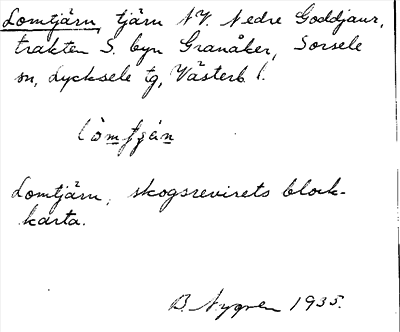 Lomtjärn, tjärn NV. Nedre Goddjaur,
trakten S. byn Granåker, Sorsele
sn, Lycksele tg, Västerb. l.
lòmfjän
Lomtjärn, skogsrevirets block-
karta.
B. Nygren 1935.